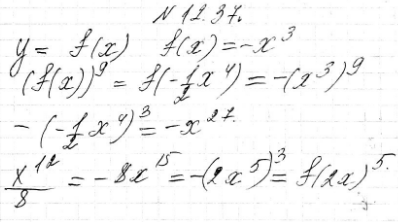 N 12.37.
y = f(x) f(x) = -x³
(f(x))⁹ = f(-1/2 x⁴) = -(x³)⁹
-(-1/2 x⁴)³ = -x²⁷.
x¹²/8 = -8x¹⁵ = -(2x⁵)³ = f(2x)⁵.